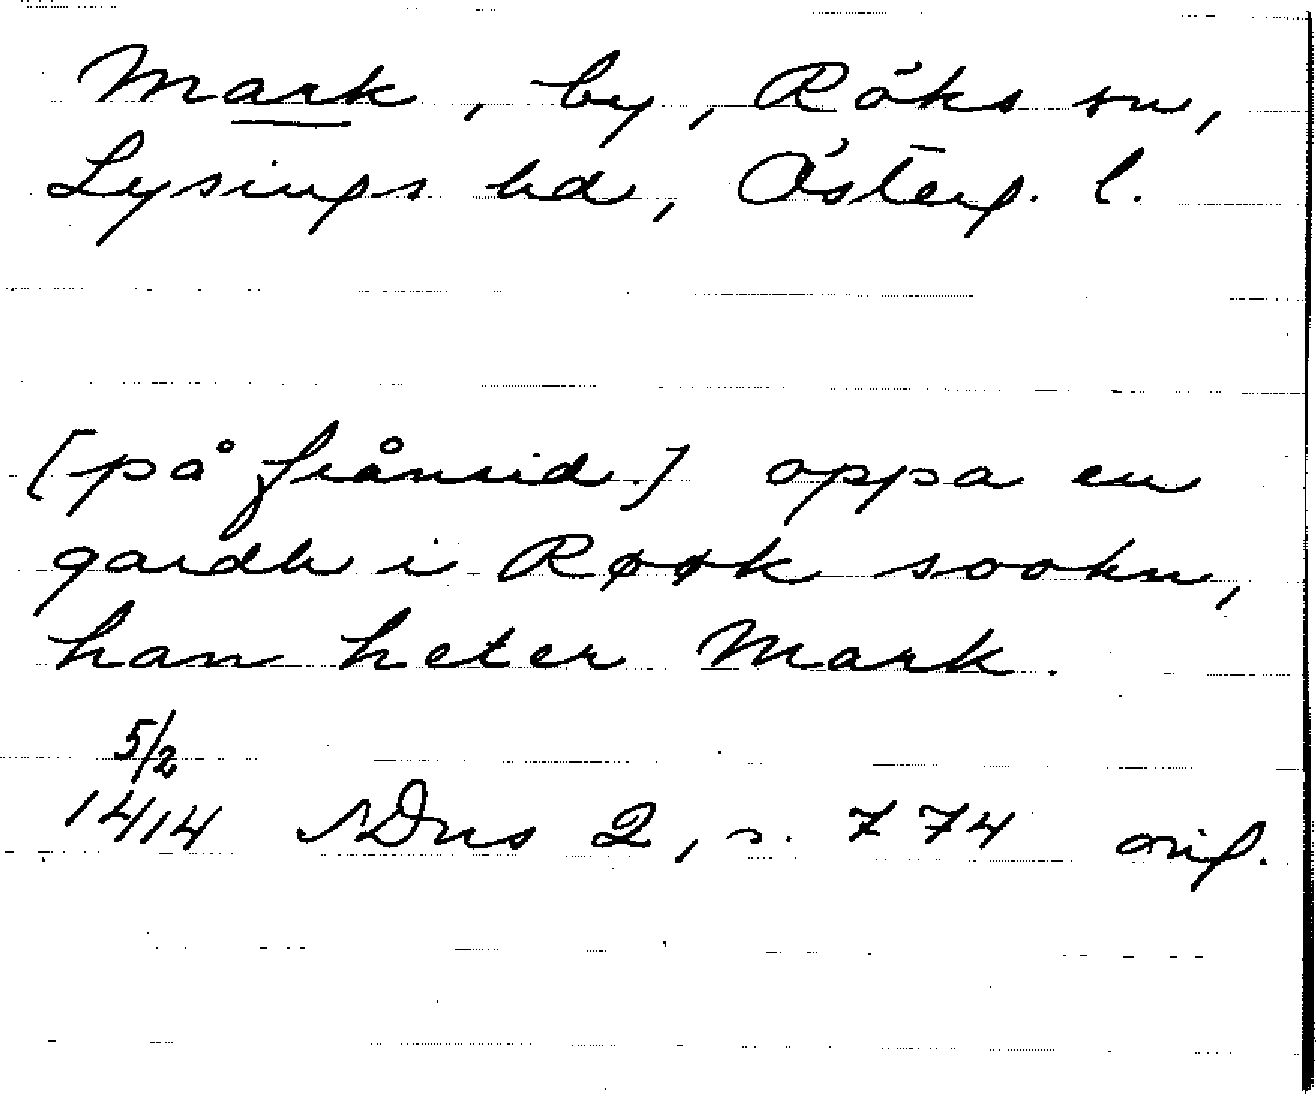 Mark, by, Röks sn,
Lysings hd, Österg. l.
[på frånsid.] oppa en
gardh i Røøk sookn,
han heter Mark.
5/2
1414 NDns 2, s. 774 orig.